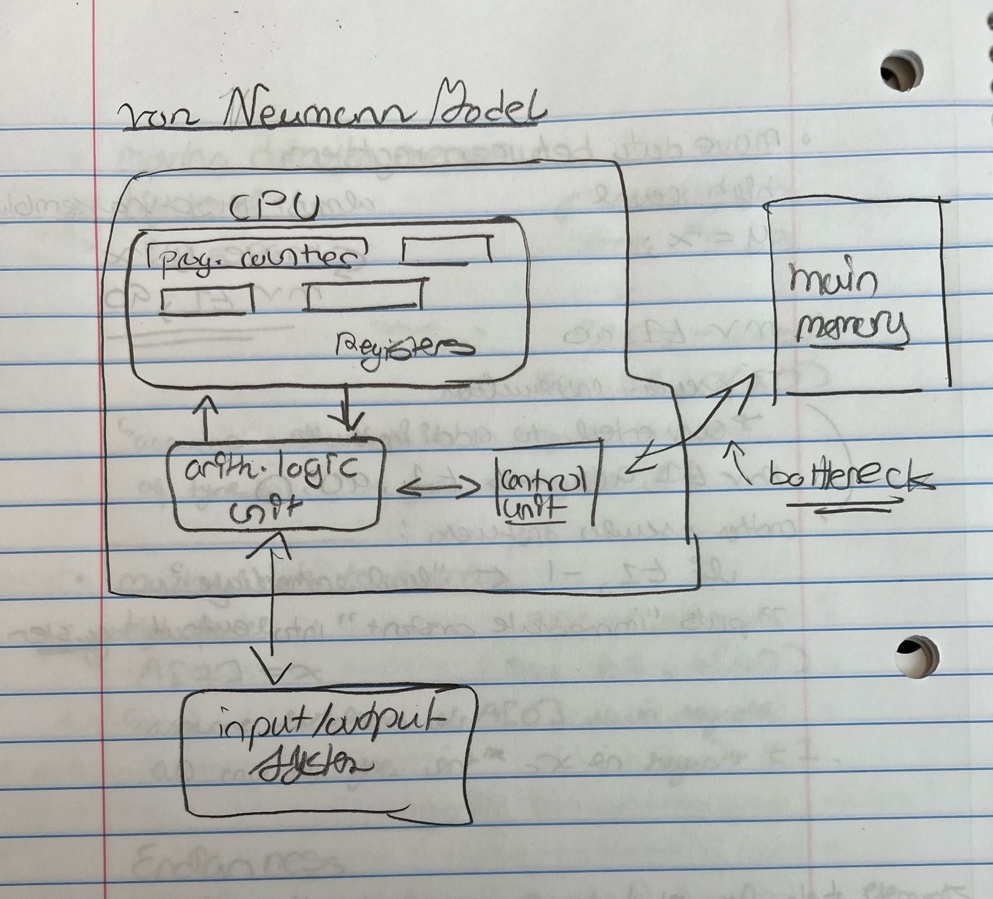 von Neumann Model
CPU
prog. counter
Registers
main
memory
arith. logic
unit
control
unit
bottleneck
input/output
system